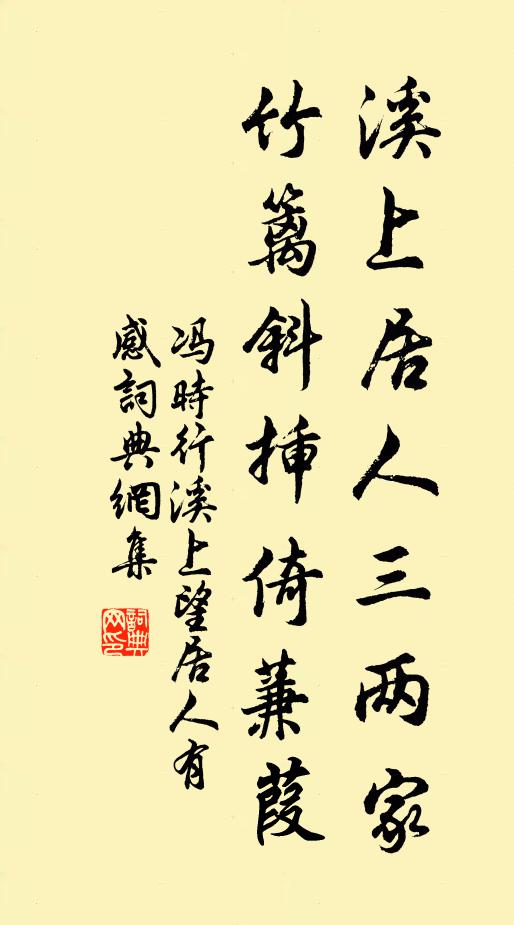 溪上居人三两家
竹篱斜挿倚蒹葭
冯時行溪上望居人有
感詞典網集
詞典
网印